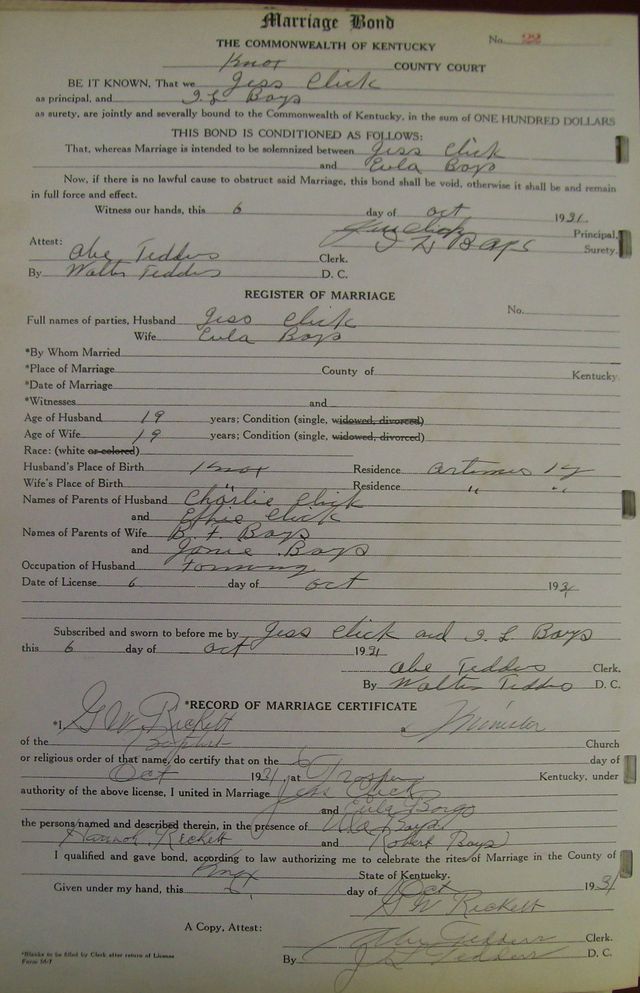 Marriage Bond
No. 22
THE COMMONWEALTH OF KENTUCKY
Knox COUNTY COURT
BE IT KNOWN, That we Jess Click
as principal, and I L Bays
as surety, are jointly and severally bound to the Commonwealth of Kentucky, in the sum of ONE HUNDRED DOLLARS
THIS BOND IS CONDITIONED AS FOLLOWS:
That, whereas Marriage is intended to be solemnized between Jess Click
and Eula Bays
Now, if there is no lawful cause to obstruct said Marriage, this bond shall be void, otherwise it shall be and remain
in full force and effect.
Witness our hands, this 6 day of Oct 1931.
Jess Click Principal,
I L Bays Surety.
Attest: Abe Tedders Clerk.
By Walter Tedders D. C.
REGISTER OF MARRIAGE
No.
Full names of parties, Husband Jess Click
Wife Eula Bays
*By Whom Married
*Place of Marriage County of Kentucky.
*Date of Marriage
*Witnesses and
Age of Husband 19 years; Condition (single, widowed, divorced)
Age of Wife 19 years; Condition (single, widowed, divorced)
Race: (white or colored)
Husband's Place of Birth Knox Residence Artemus Ky
Wife's Place of Birth " Residence " "
Names of Parents of Husband Charlie Click
and Effie Click
Names of Parents of Wife B. F. Bays
and Janie Bays
Occupation of Husband Farming
Date of License 6 day of Oct 1931
Subscribed and sworn to before me by Jess Click and I L Bays
this 6 day of Oct 1931
Abe Tedders Clerk.
By Walter Tedders D. C.
*RECORD OF MARRIAGE CERTIFICATE
*I, G W Rickett a Minister
of the Baptist Church
or religious order of that name, do certify that on the 6 day of
Oct 1931, at Prosper Kentucky, under
authority of the above license, I united in Marriage Jess Click
and Eula Bays
the persons named and described therein, in the presence of Bays
Hannah Rickett and Robert Bays
I qualified and gave bond, according to law authorizing me to celebrate the rites of Marriage in the County of
Knox State of Kentucky.
Given under my hand, this day of Oct 1931
G W Rickett
A Copy, Attest:
Abe Tedders Clerk.
By J L Tedders D. C.
*Blanks to be filled by Clerk after return of License
Form 58-7